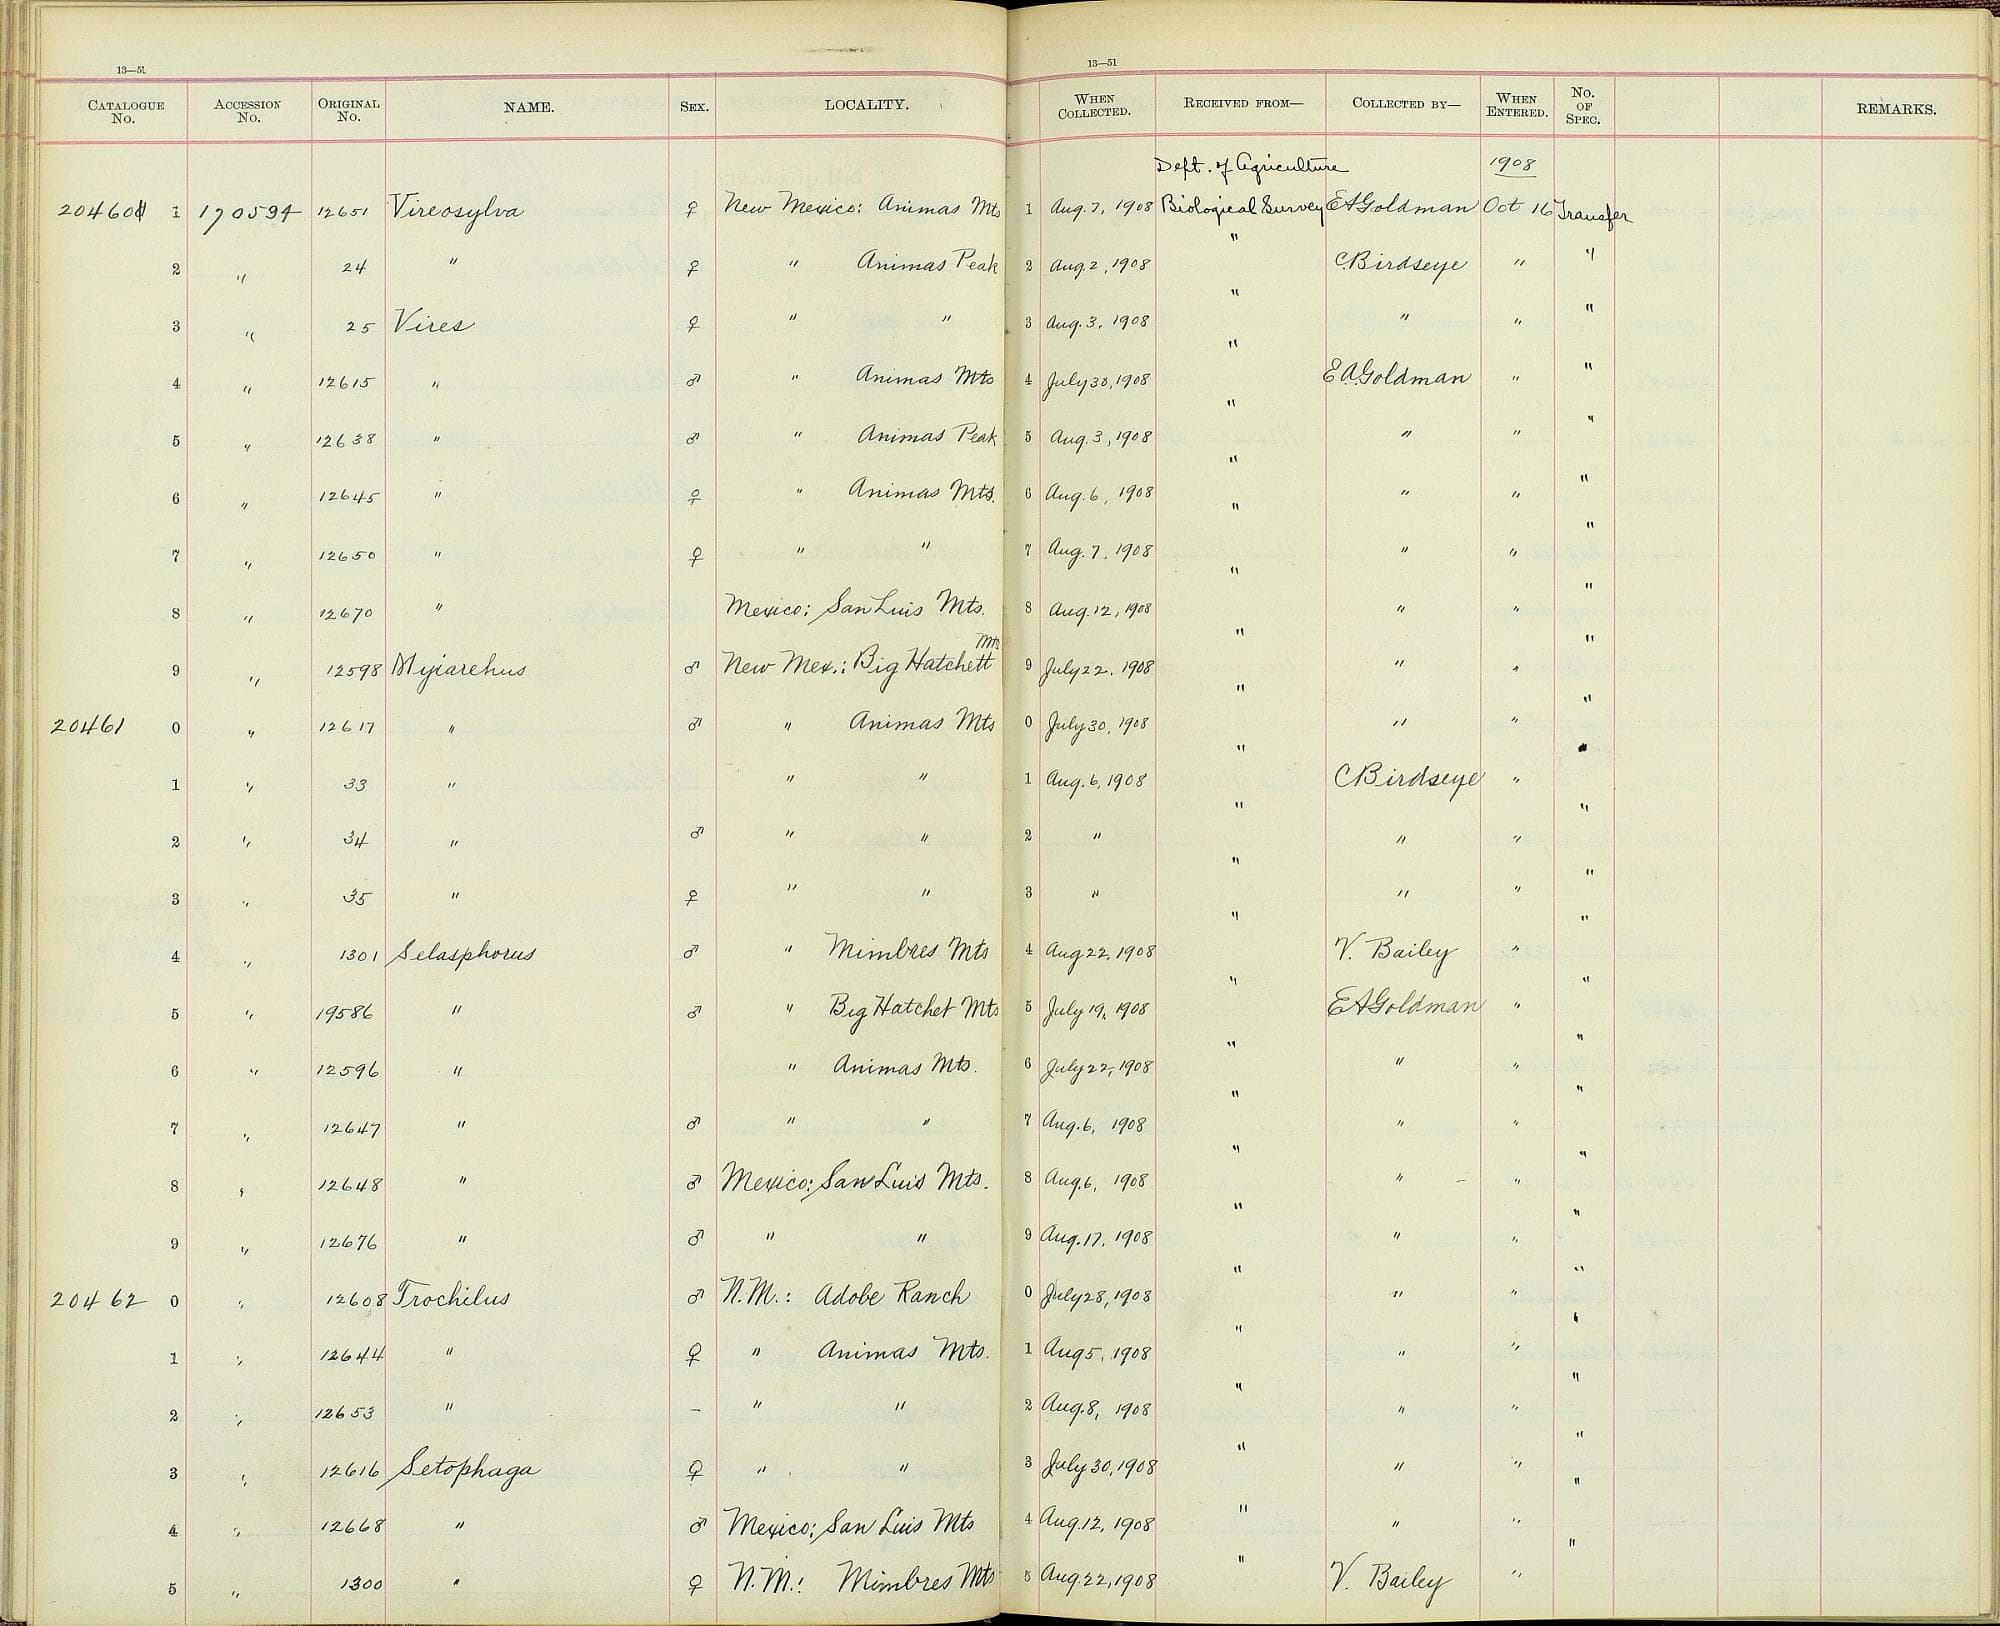 13—51 13—51
CATALOGUE No. ACCESSION No. ORIGINAL No. NAME. SEX. LOCALITY. WHEN COLLECTED. RECEIVED FROM— COLLECTED BY— WHEN ENTERED. No. OF SPEC. REMARKS.
Dept. of Agriculture 1908
20460 1 170594 12651 Vireosylva ♀ New Mexico: Animas Mts 1 Aug. 7, 1908 Biological Survey EAGoldman Oct 16 Transfer
2 " 24 " ♀ " Animas Peak 2 Aug. 2, 1908 " C.Birdseye " "
3 " 25 Vires ♀ " " 3 Aug. 3, 1908 " " " "
4 " 12615 " ♂ " Animas Mts 4 July 30, 1908 " E.A.Goldman " "
5 " 12638 " ♂ " Animas Peak 5 Aug. 3, 1908 " " " "
6 " 12645 " ♀ " Animas Mts. 6 Aug. 6, 1908 " " " "
7 " 12650 " ♀ " " 7 Aug. 7, 1908 " " " "
8 " 12670 " Mexico: San Luis Mts. 8 Aug. 12, 1908 " " " "
9 " 12598 Myiarchus ♂ New Mex.: Big Hatchett Mts 9 July 22, 1908 " " " "
20461 0 " 12617 " ♂ " Animas Mts 0 July 30, 1908 " " " "
1 " 33 " " " 1 Aug. 6, 1908 " C Birdseye " "
2 " 34 " ♂ " " 2 " " " " "
3 " 35 " ♀ " " 3 " " " " "
4 " 1301 Selasphorus ♂ " Mimbres Mts 4 Aug 22, 1908 " V. Bailey " "
5 " 19586 " ♂ " Big Hatchet Mts 5 July 19, 1908 " EAGoldman " "
6 " 12596 " " Animas Mts. 6 July 22, 1908 " " " "
7 " 12647 " ♂ " " 7 Aug. 6, 1908 " " " "
8 " 12648 " ♂ Mexico: San Luis Mts. 8 Aug. 6, 1908 " " " "
9 " 12676 " ♂ " " 9 Aug. 17, 1908 " " " "
20462 0 " 12608 Trochilus ♂ N.M.: Adobe Ranch 0 July 28, 1908 " " " "
1 " 12644 " ♀ " Animas Mts. 1 Aug 5, 1908 " " " "
2 " 12653 " – " " 2 Aug. 8, 1908 " " " "
3 " 12616 Setophaga ♀ " " 3 July 30, 1908 " " " "
4 " 12668 " ♂ Mexico; San Luis Mts 4 Aug. 12, 1908 " " " "
5 " 1300 " ♀ N.M.: Mimbres Mts 5 Aug. 22, 1908 " V. Bailey " "